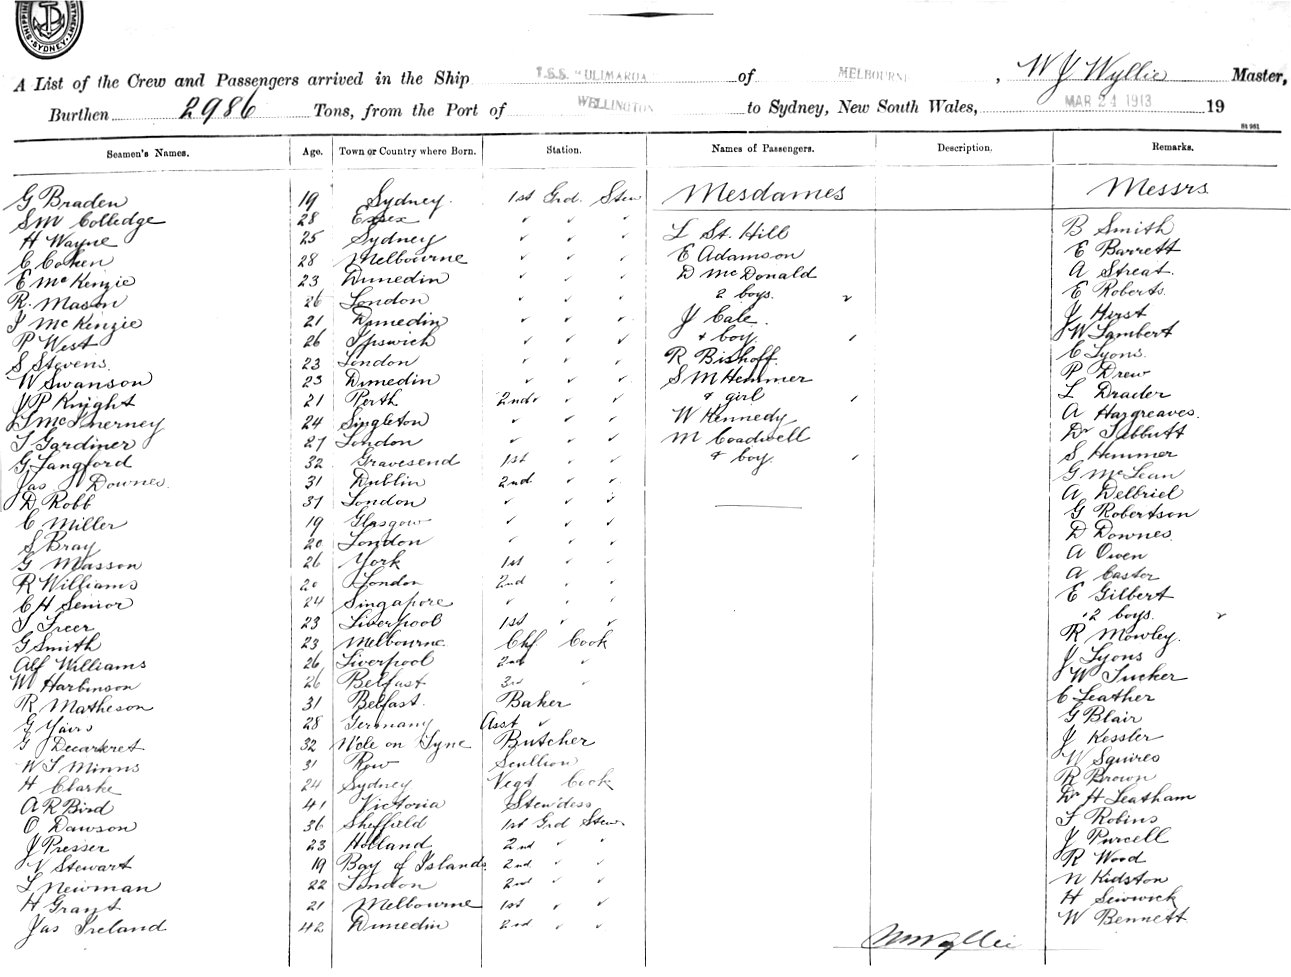 SHIPPING DEPARTMENT. SYDNEY.
A List of the Crew and Passengers arrived in the Ship T.S.S. "ULIMAROA of MELBOURNE, W J Wyllie Master,
Burthen 2986 Tons, from the Port of WELLINGTON to Sydney, New South Wales, MAR 24 1913 19
St 981
Seamen's Names. Age. Town or Country where Born. Station. Names of Passengers. Description. Remarks.
Mesdames Messrs
G Braden 19 Sydney. 1st Grd. Stew
S M Colledge 28 Essex ✓ ✓ ✓ L St. Hill B Smith
H Wayne 25 Sydney ✓ ✓ ✓ E Adamson E Barrett
C Cohen 28 Melbourne ✓ ✓ ✓ D McDonald A Streat.
E McKenzie 23 Dunedin ✓ ✓ ✓ 2 boys. 2 E Roberts.
R. Mason 26 London ✓ ✓ ✓ J Cale. J Hirst
J McKenzie 21 Dunedin ✓ ✓ ✓ & boy ✓ W Lambert
P West 26 Ipswich ✓ ✓ ✓ R Bishoff. C Lyons.
S Stevens. 23 London ✓ ✓ ✓ S M Hemmer P Drew
W Swanson 23 Dunedin ✓ ✓ ✓ & girl ✓ L Drader
J P Knight 21 Perth 2nd ✓ ✓ W Kennedy A Hargreaves.
McInerney 24 Singleton ✓ ✓ ✓ M Coadwell Dr Tebbutt
T Gardiner 27 London ✓ ✓ ✓ & boy. ✓ S Hemmer
G Langford 32 Gravesend 1st ✓ ✓ G McLean
Jas Downes. 31 Dublin 2nd ✓ ✓ A Delbriel
D Robb 31 London ✓ ✓ ✓ G Robertson
C Miller 19 Glasgow ✓ ✓ ✓ D Downes.
S Bray 20 London ✓ ✓ ✓ A Owen
G Masson 26 York 1st ✓ ✓ A Easter
R Williams 20 London 2nd ✓ ✓ E Gilbert
C H Senior 24 Singapore ✓ ✓ ✓ 2 boys. ✓
T Freer 23 Liverpool 1st ✓ ✓ R Mowley.
G Smith 23 Melbourne Chf Cook J Lyons
Alf Williams 26 Liverpool 2nd ✓ W Tucker
W Harbinson 26 Belfast 3rd ✓ C Leather
R Matheson 31 Belfast. Baker G Blair
28 Germany Asst ✓ J Kessler
G Decarteret 32 N'cle on Tyne Butcher W Squires
W T Minns 31 Scullion R Brown
H Clarke 24 Sydney Vegt Cook Dr H Leatham
A R Bird 41 Victoria Stew'dess F Robins
O. Dawson 36 Sheffield 1st Grd Stew J Purcell
J Presser 23 Holland 2nd ✓ " R Wood
N Stewart 19 Bay of Islands. 2nd ✓ ✓ N Kidston
L Newman 22 London 2nd ✓ ✓ H
H Grant 21 Melbourne 1st ✓ ✓ W Bennett
Jas Ireland 42 Dunedin 2nd ✓ ✓
Wm Wyllie